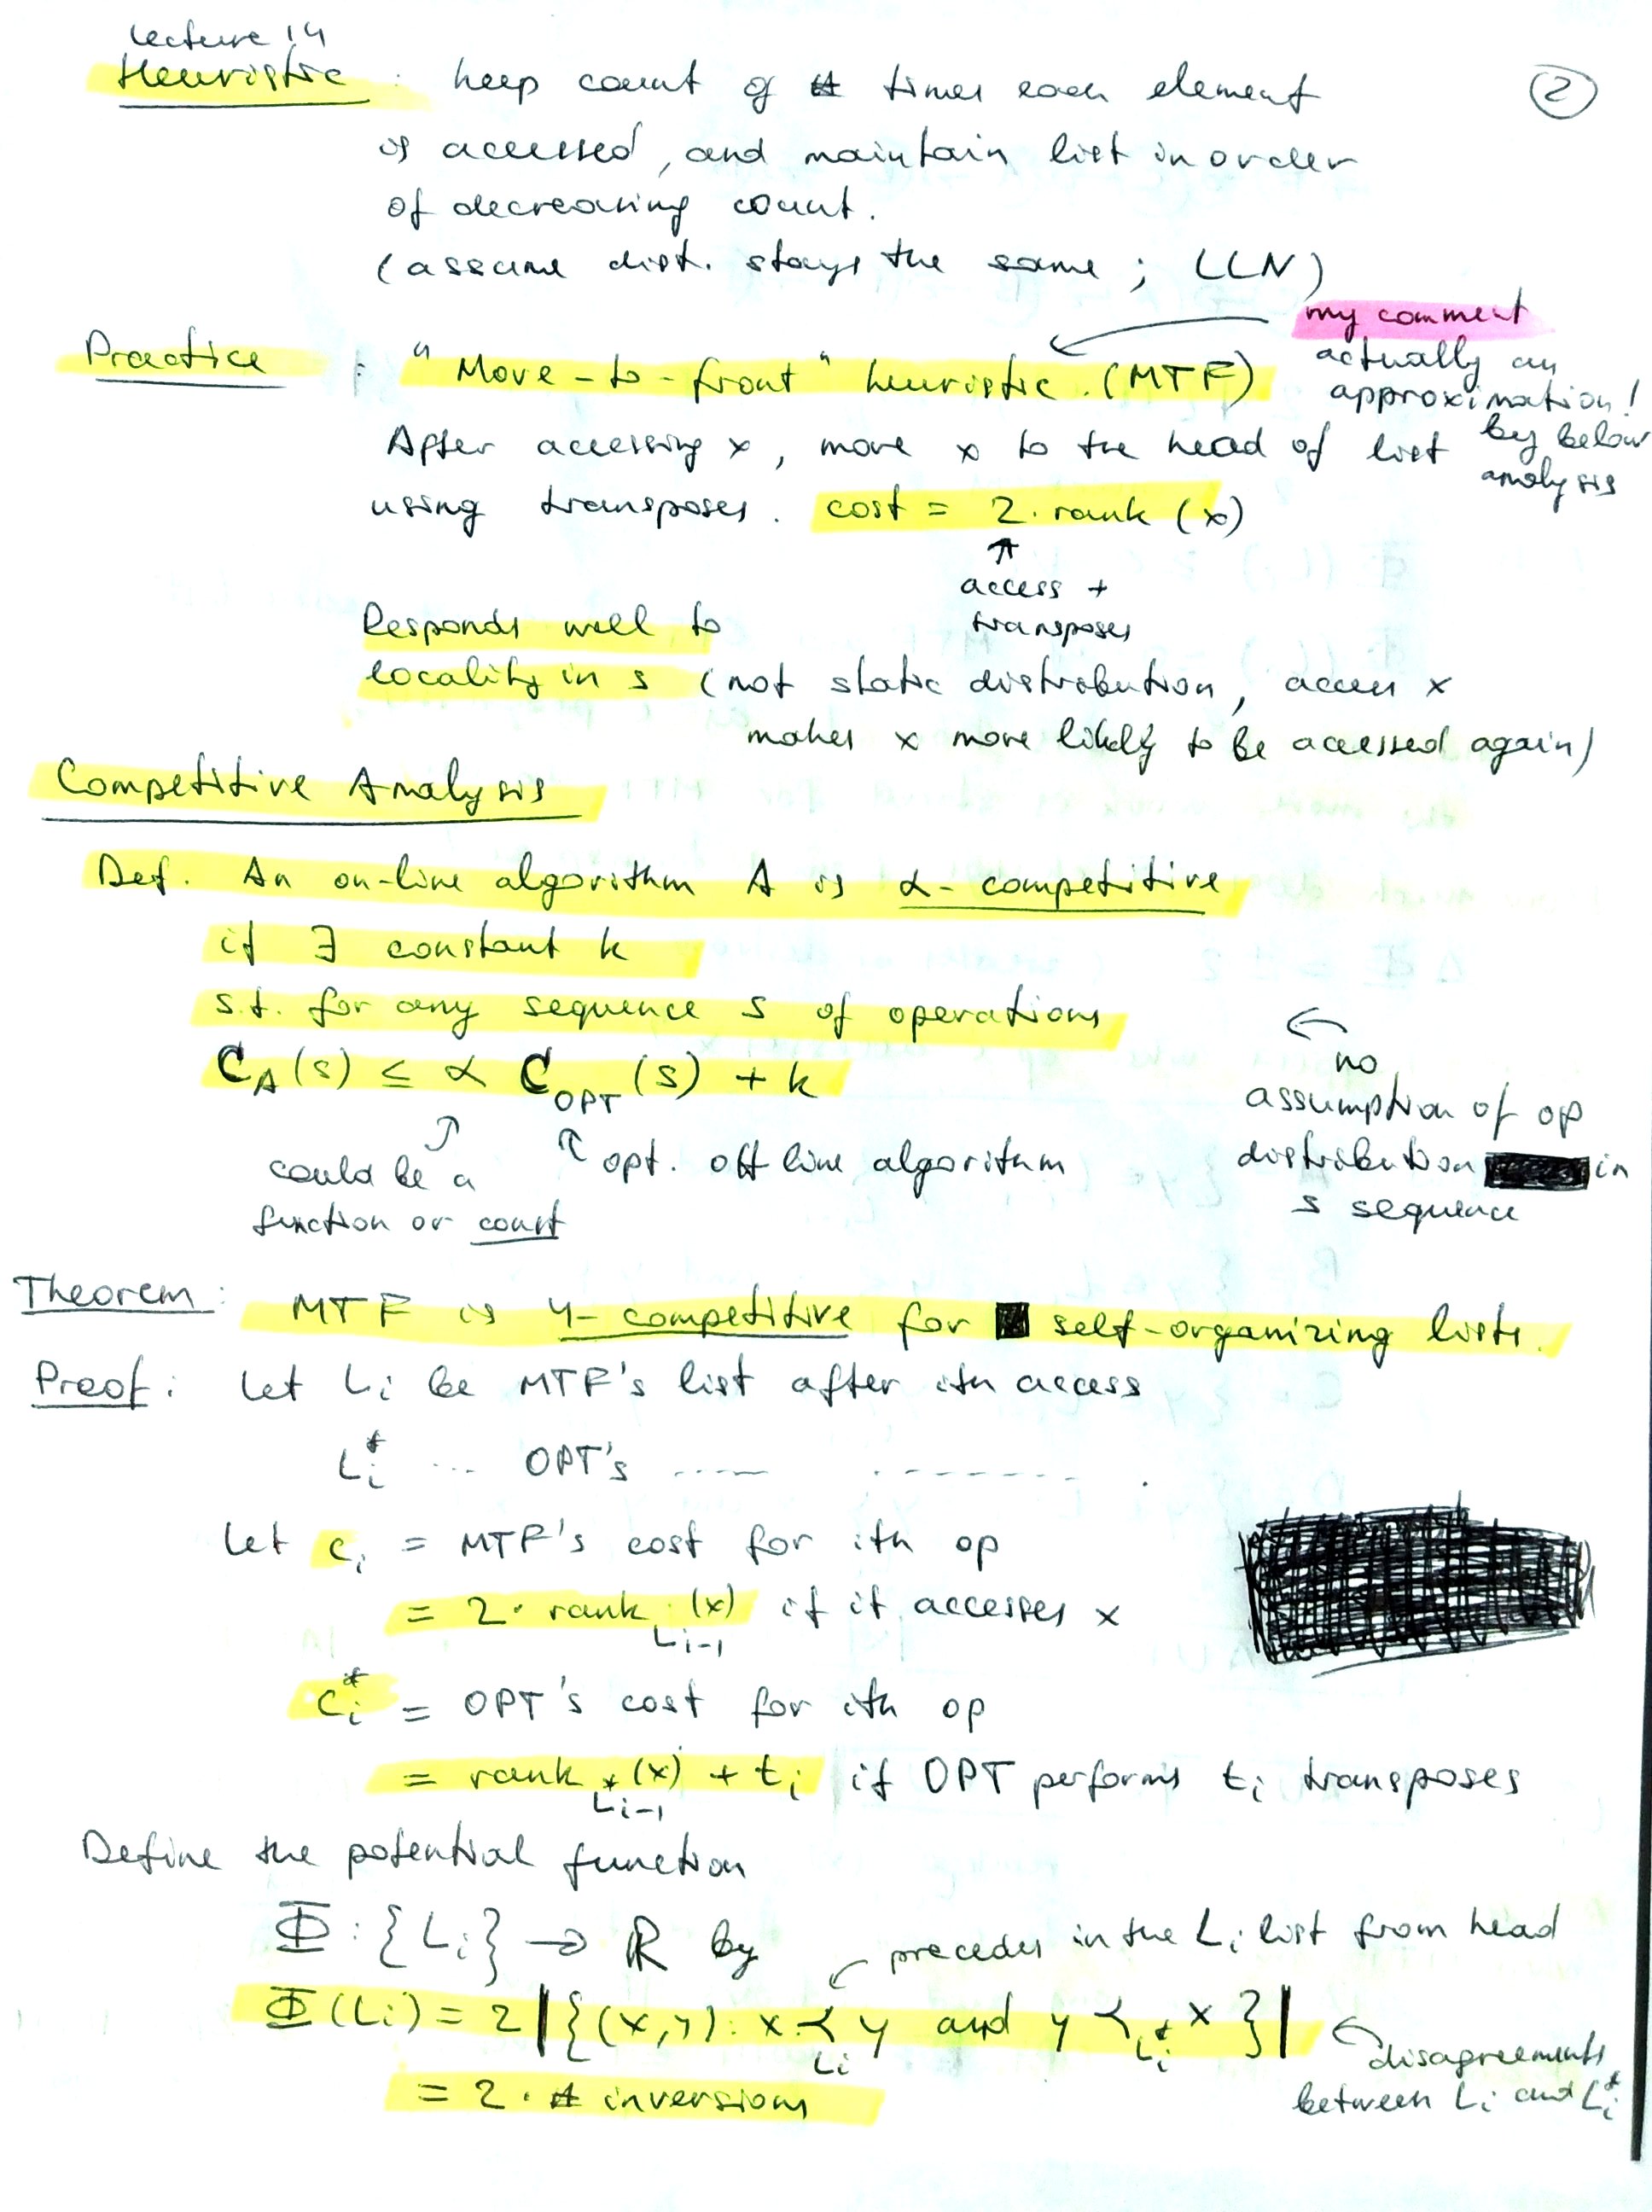 Lecture 14
Heuristic : keep count of # times each element
②
is accessed, and maintain list in order
of decreasing count.
(assume dist. stays the same ; LLN)
my comment
actually an
approximation!
by below
analysis
Practice : "Move-to-front" heuristic. (MTF)
After accessing x, move x to the head of list
using transposes. cost = 2 · rank (x)
↑
access +
transposes
Responds well to
locality in s (not static distribution, access x
makes x more likely to be accessed again)
Competitive Analysis
Def. An on-line algorithm A is α-competitive
if ∃ constant k
s.t. for any sequence s of operations
C_A(s) ≤ α C_OPT(s) + k
← no
assumption of op
distribution in
s sequence
could be a
function or const
opt. off line algorithm
Theorem: MTF is 4-competitive for self-organizing lists.
Proof: Let L_i be MTF's list after ith access
L_i^* --- OPT's ---- -------
Let c_i = MTF's cost for ith op
= 2 · rank_{L_{i-1}}(x) if it accesses x
c_i^* = OPT's cost for ith op
= rank_{L_{i-1}^*}(x) + t_i if OPT performs t_i transposes
Define the potential function
Φ : {L_i} → ℝ by
precedes in the L_i list from head
Φ(L_i) = 2|{(x,y): x ≺_{L_i} y and y ≺_{L_i^*} x}|
← disagreements
between L_i and L_i^*
= 2 · # inversions